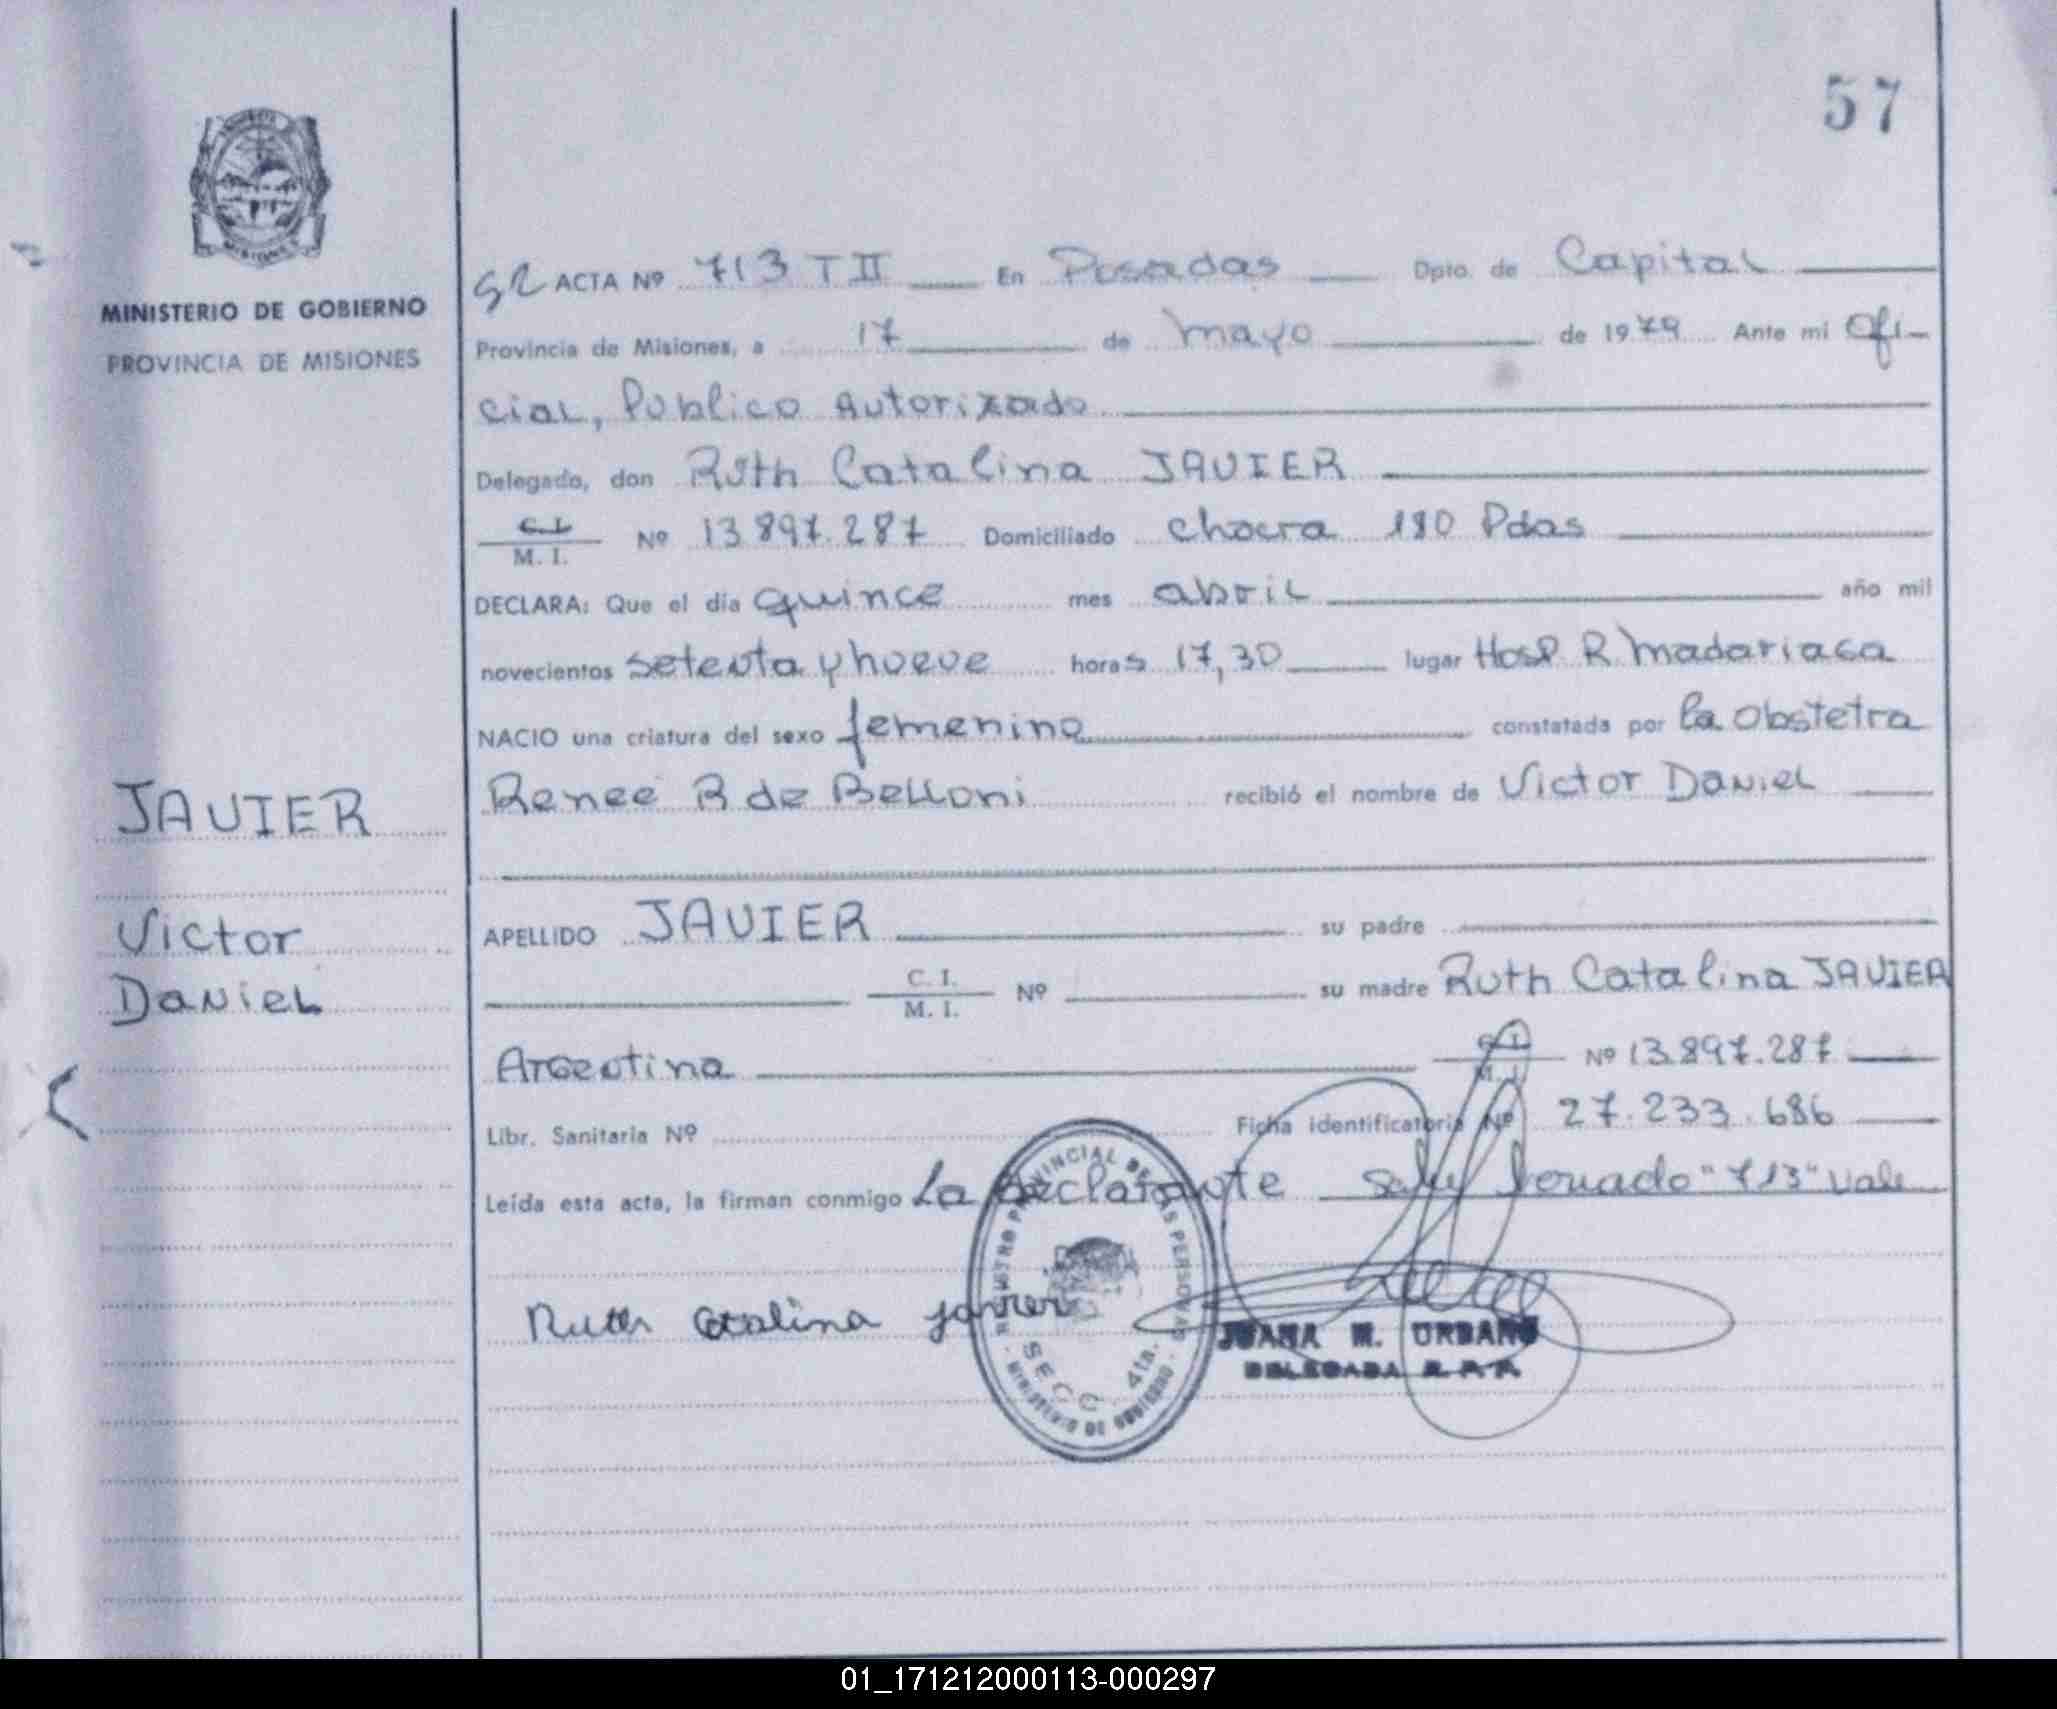 57
MINISTERIO DE GOBIERNO
PROVINCIA DE MISIONES
ACTA Nº 713 T II En Posadas Dpto. de Capital
Provincia de Misiones, a 17 de mayo de 1979 Ante mi Ofi-
cial, Publico Autorizado
Delegado, don Ruth Catalina JAVIER
C. I.
M. I. Nº 13.897.287 Domiciliado Chacra 180 Pdas
DECLARA: Que el día quince mes abril año mil
novecientos setenta y nueve horas 17,30 lugar Hosp R Madariaga
NACIO una criatura del sexo femenino constatada por la Obstetra
Renee R de Belloni recibió el nombre de Victor Daniel
JAVIER
Victor
Daniel
APELLIDO JAVIER su padre
C. I.
M. I. Nº su madre Ruth Catalina JAVIER
Argentina C. I.
M. I. Nº 13.897.287
Libr. Sanitaria Nº Ficha identificatoria Nº 27.233.686
Leída esta acta, la firman conmigo La declarante "713" vale
Ruth Catalina Javier
REGISTRO PROVINCIAL DE LAS PERSONAS
SECC. 4ta.
MINISTERIO DE GOBIERNO
JUANA M. URBANO
DELEGADA R. P. P.
01_171212000113-000297